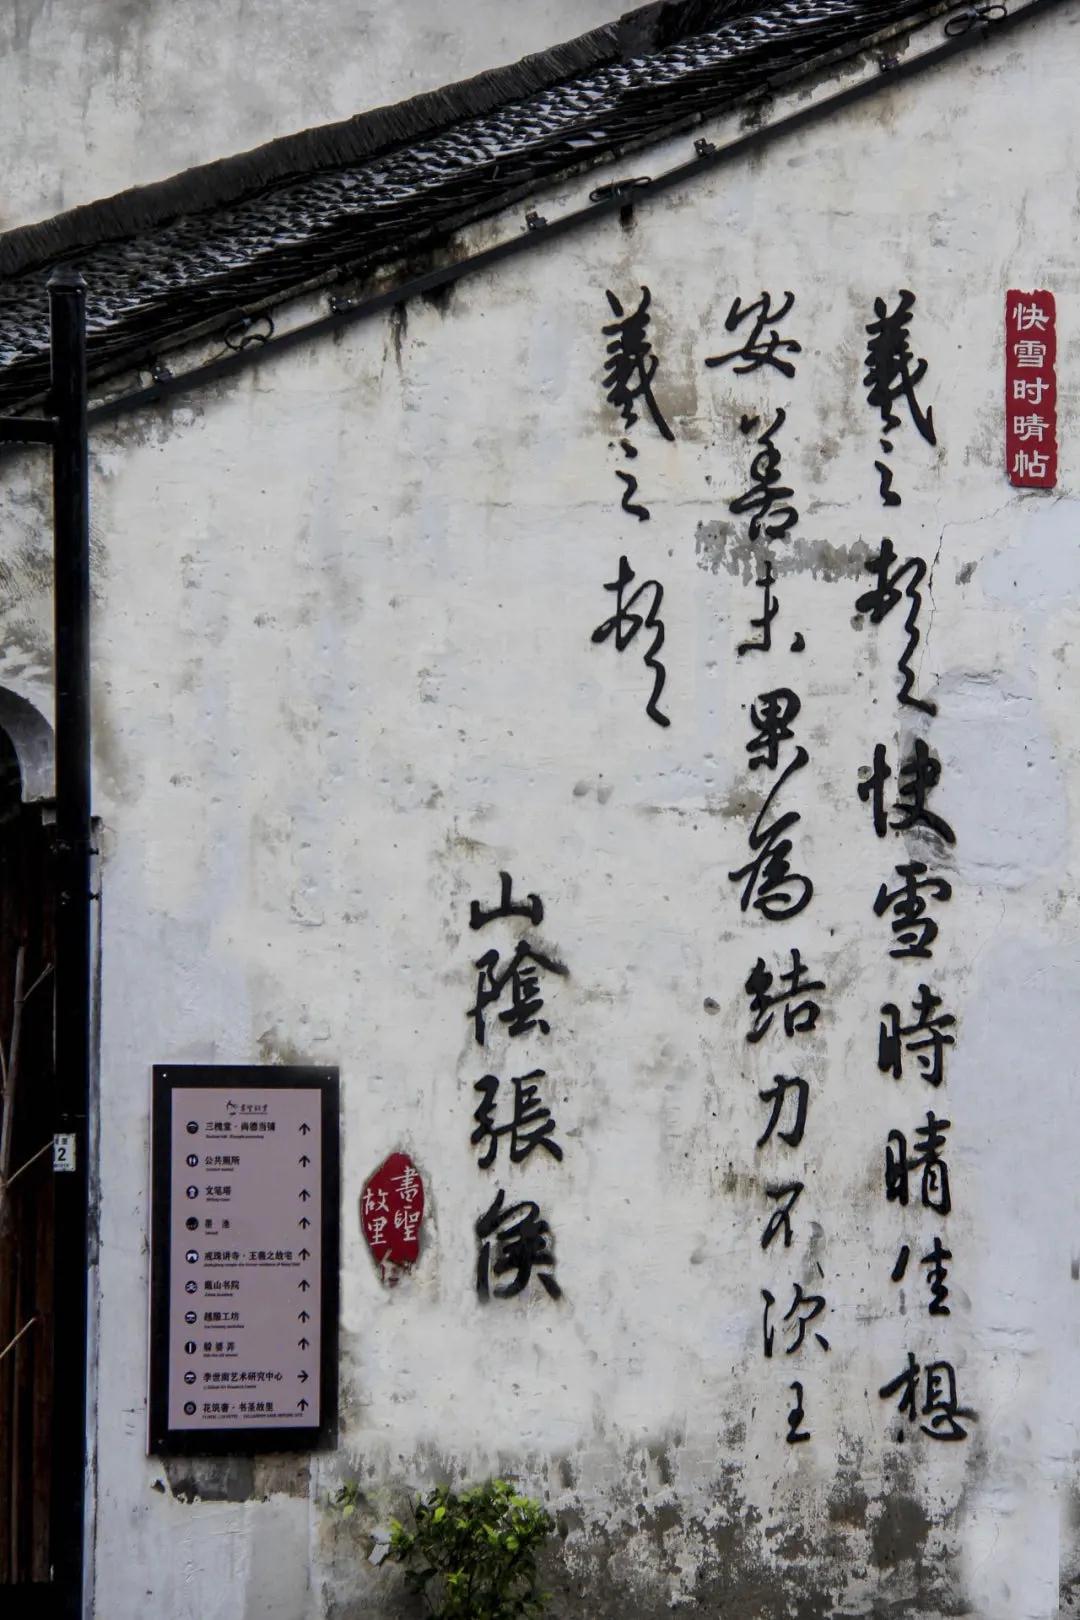 快雪时晴帖
羲之頓首快雪時晴佳想
安善未果為結力不次王
羲之頓首
山陰張侯
書聖
故里
三槐堂·尚德当铺
公共厕所
文笔塔
墨 池
戒珠讲寺·王羲之故宅
蕺山书院
越酿工坊
躲婆弄
李世南艺术研究中心
花筑奢·书圣故里
2